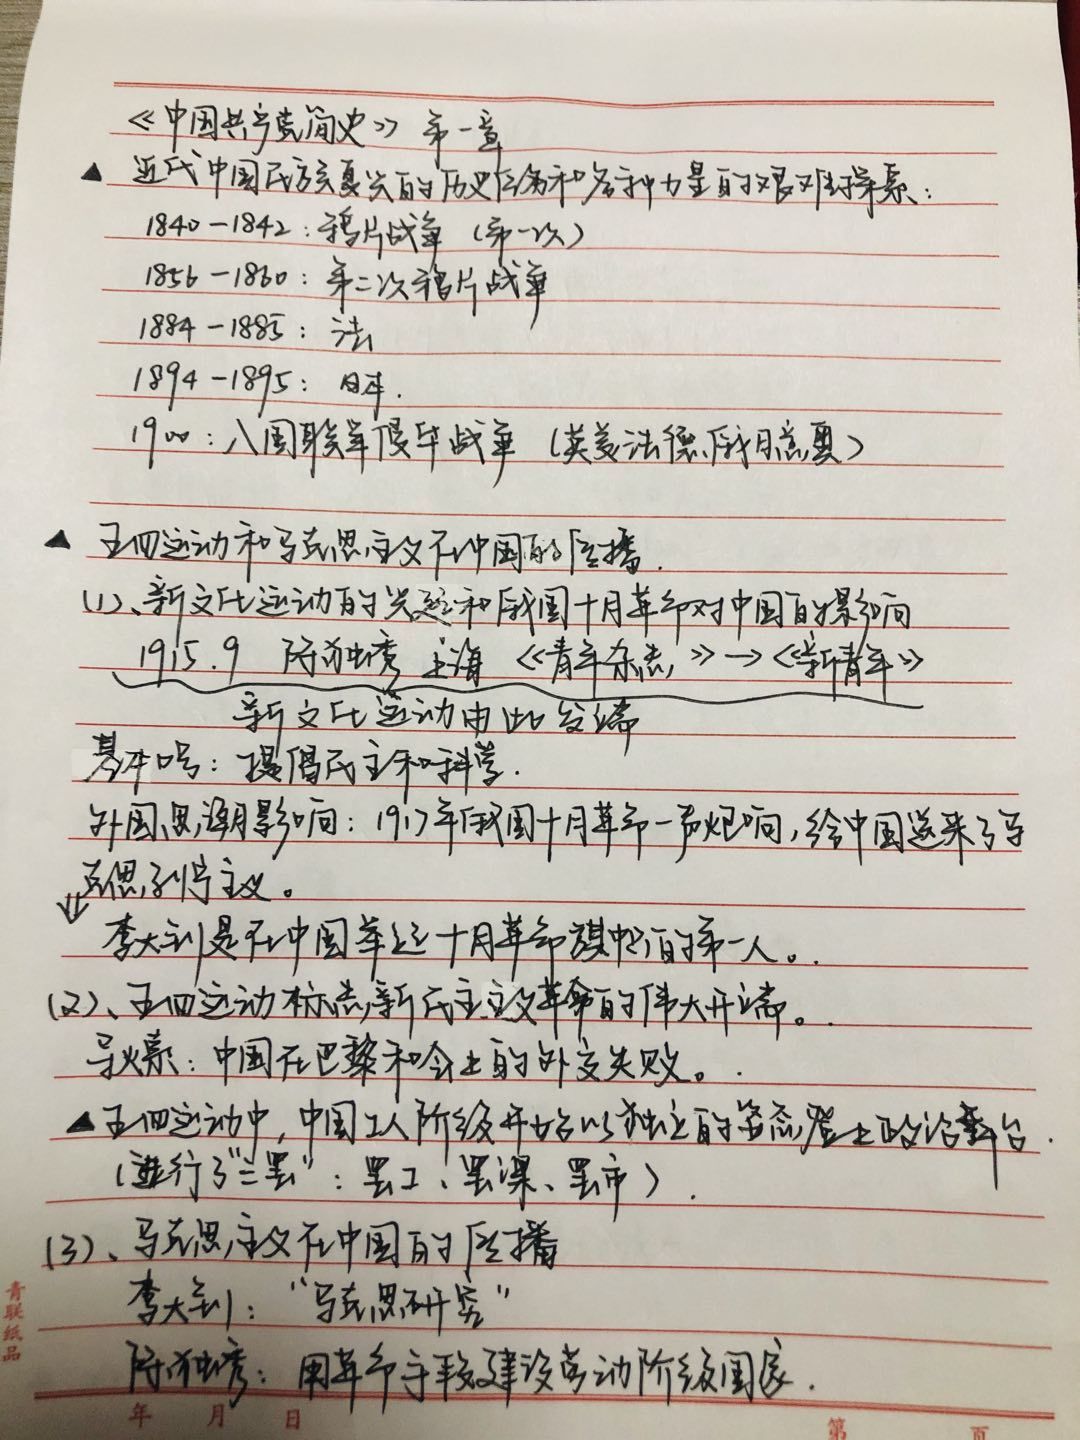 《中国共产党简史》 第一章
▲ 近代中国民族复兴的历史任务和各种力量的艰难探索：
1840-1842：鸦片战争（第一次）
1856-1860：第二次鸦片战争
1884-1885：法
1894-1895：日本.
1900：八国联军侵华战争（英美法德俄日意奥）
▲ 五四运动和马克思主义在中国的传播.
(1)、新文化运动的兴起和俄国十月革命对中国的影响
1915.9 陈独秀 上海 《青年杂志》→《新青年》
新文化运动由此发端
基本口号：提倡民主和科学.
外国思潮影响：1917年俄国十月革命一声炮响，给中国送来了马
克思列宁主义。
↓
李大钊是在中国举起十月革命旗帜的第一人。
(2)、五四运动标志新民主主义革命的伟大开端。
导火索：中国在巴黎和会上的外交失败。
▲五四运动中，中国工人阶级开始以独立的姿态登上政治舞台.
（进行了"三罢"：罢工、罢课、罢市）.
(3)、马克思主义在中国的传播
李大钊："马克思研究"
陈独秀：用革命手段建设劳动阶级国家.
青联纸品
年 月 日
第 页